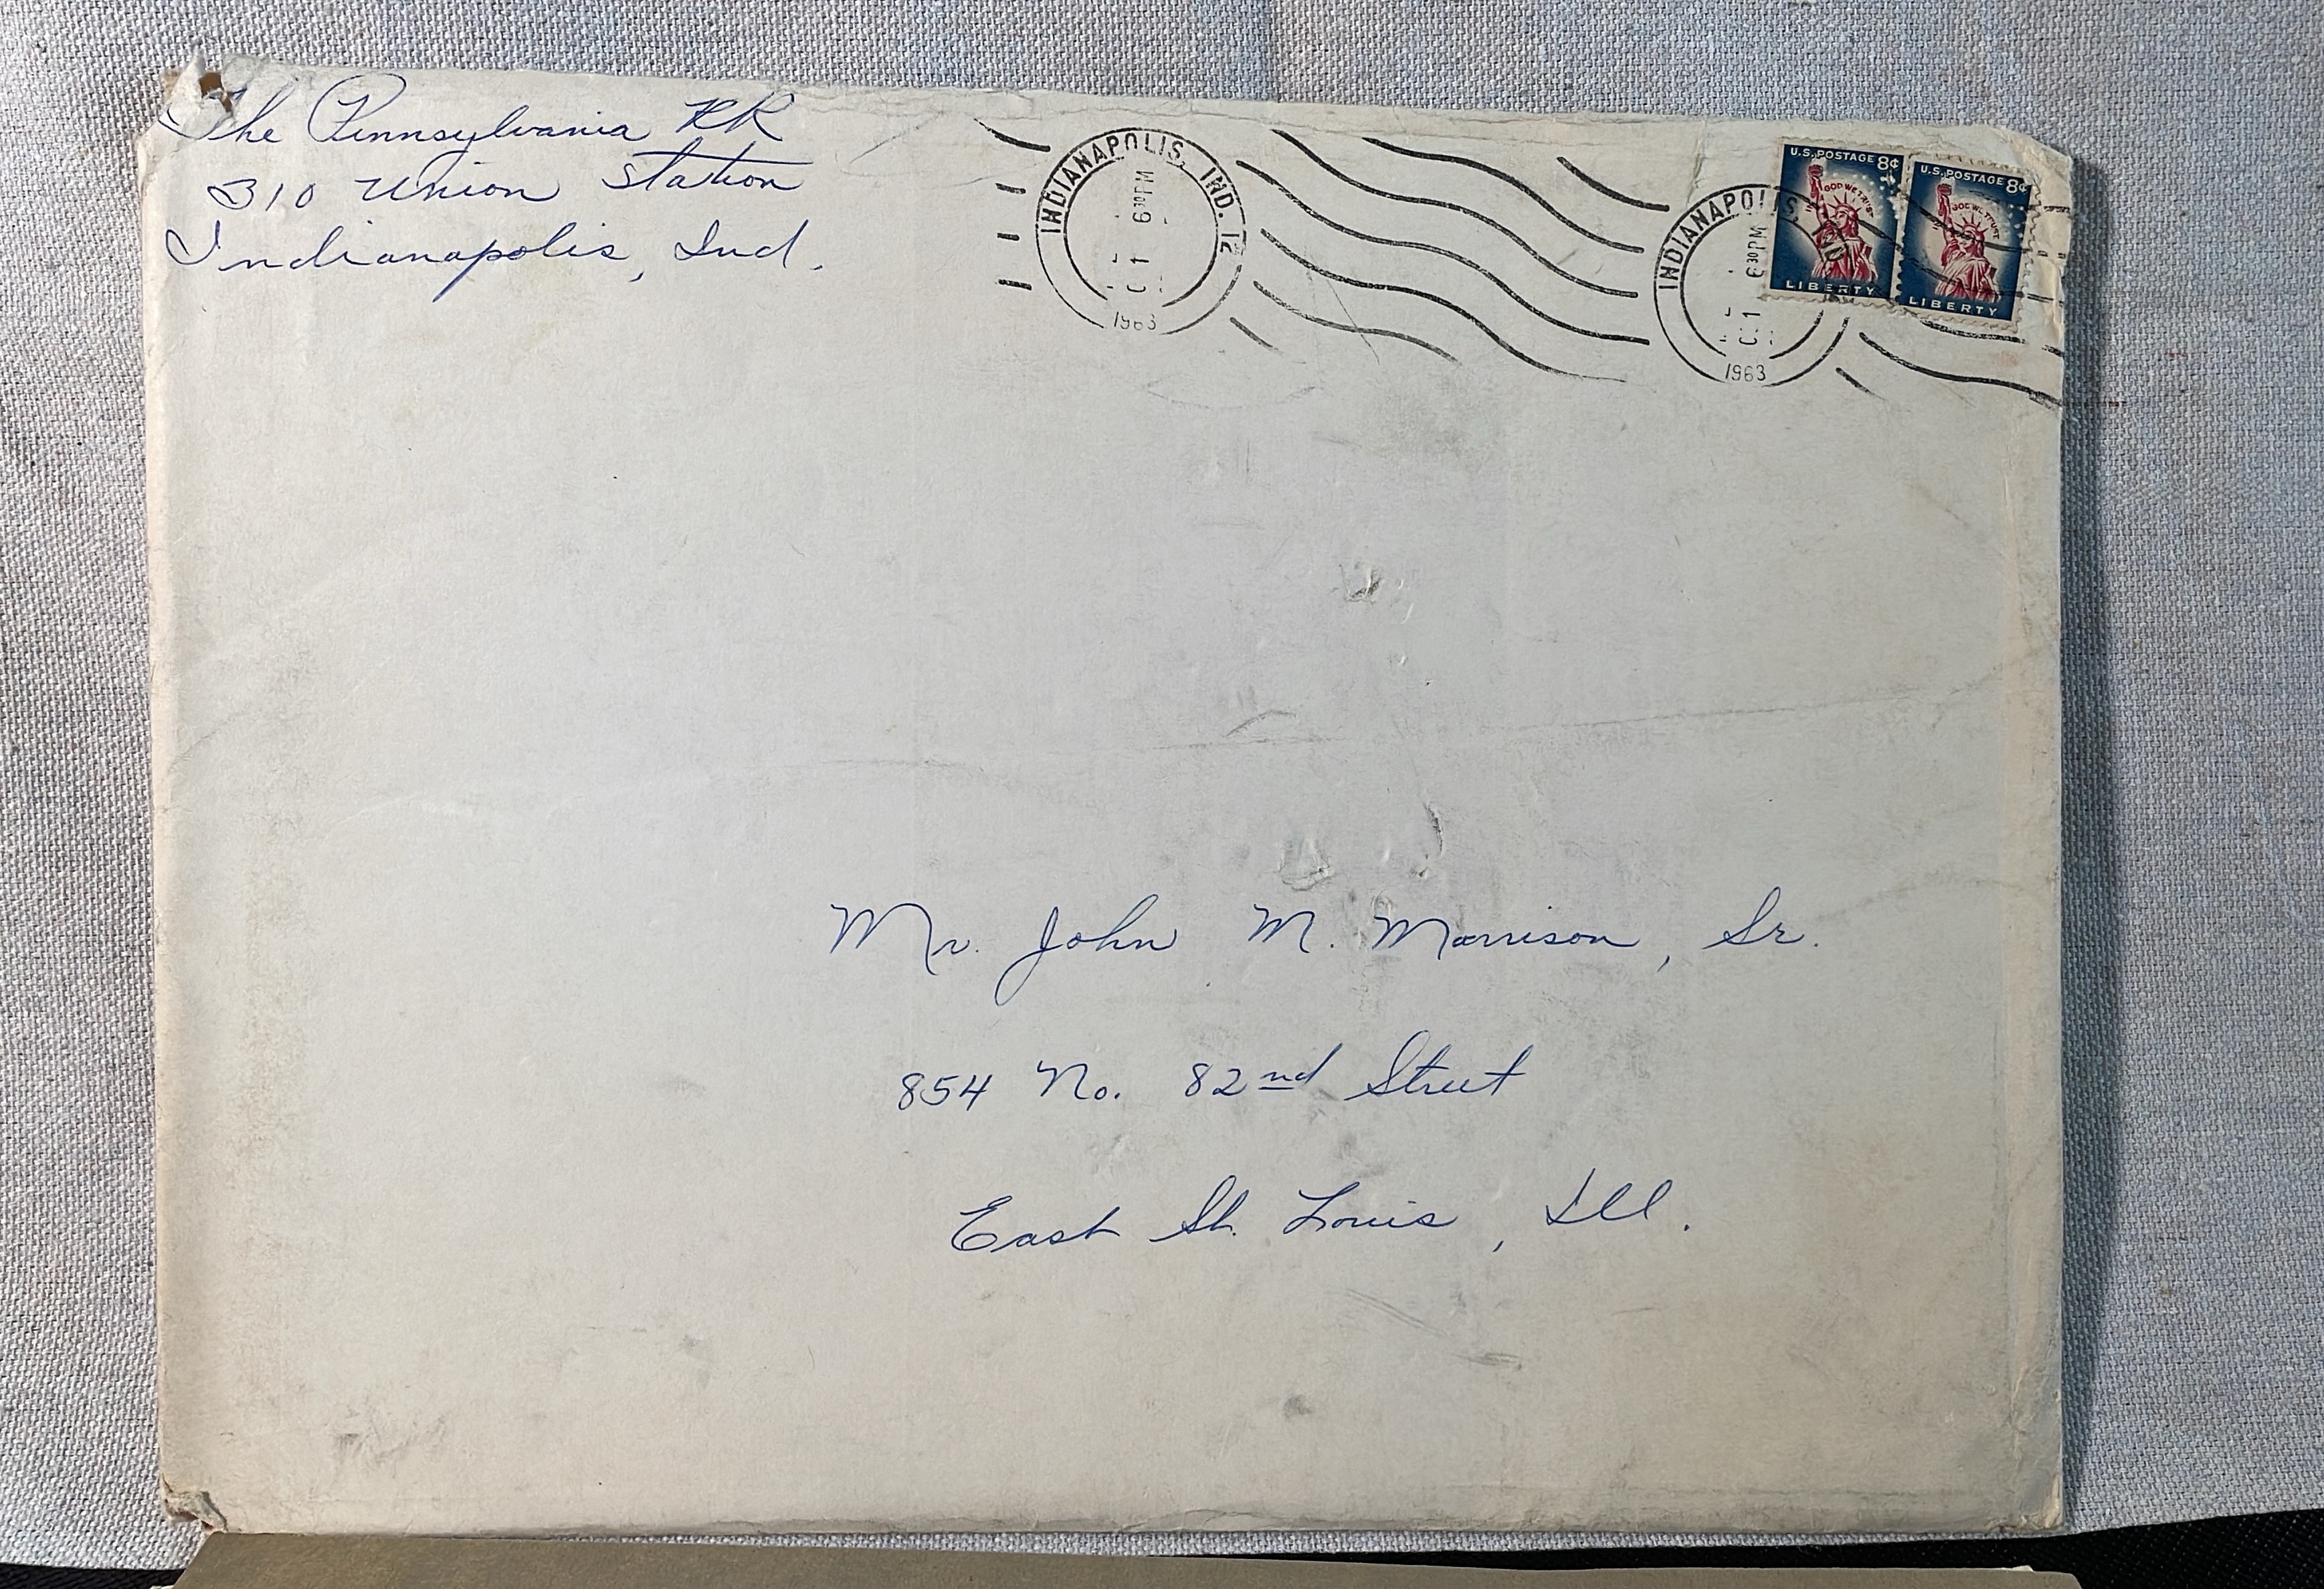 The Pennsylvania RR
310 Union Station
Indianapolis, Ind.
INDIANAPOLIS, IND. 12
6 30 PM
1
1963
INDIANAPOLIS, IND.
6 30 PM
1
1963
U.S. POSTAGE 8¢
GOD WE TRUST
LIBERTY
U.S. POSTAGE 8¢
GOD WE TRUST
LIBERTY
Mr. John M. Morrison, Sr.
854 No. 82nd Street
East St. Louis, Ill.